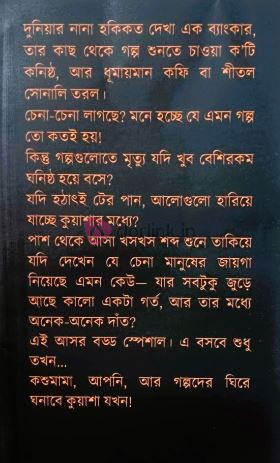 দুনিয়ার নানা হকিকত দেখা এক ব্যাংকার,
তার কাছ থেকে গল্প শুনতে চাওয়া ক'টি
কনিষ্ঠ, আর ধূমায়মান কফি বা শীতল
সোনালি তরল।
চেনা-চেনা লাগছে? মনে হচ্ছে যে এমন গল্প
তো কতই হয়!
কিন্তু গল্পগুলোতে মৃত্যু যদি খুব বেশিরকম
ঘনিষ্ঠ হয়ে বসে?
যদি হঠাৎই টের পান, আলোগুলো হারিয়ে
যাচ্ছে কুয়াশার মধ্যে?
পাশ থেকে আসা খসখস শব্দ শুনে তাকিয়ে
যদি দেখেন যে চেনা মানুষের জায়গা
নিয়েছে এমন কেউ— যার সবটুকু জুড়ে
আছে কালো একটা গর্ত, আর তার মধ্যে
অনেক-অনেক দাঁত?
এই আসর বড্ড স্পেশাল। এ বসবে শুধু
তখন...
কশুমামা, আপনি, আর গল্পদের ঘিরে
ঘনাবে কুয়াশা যখন!